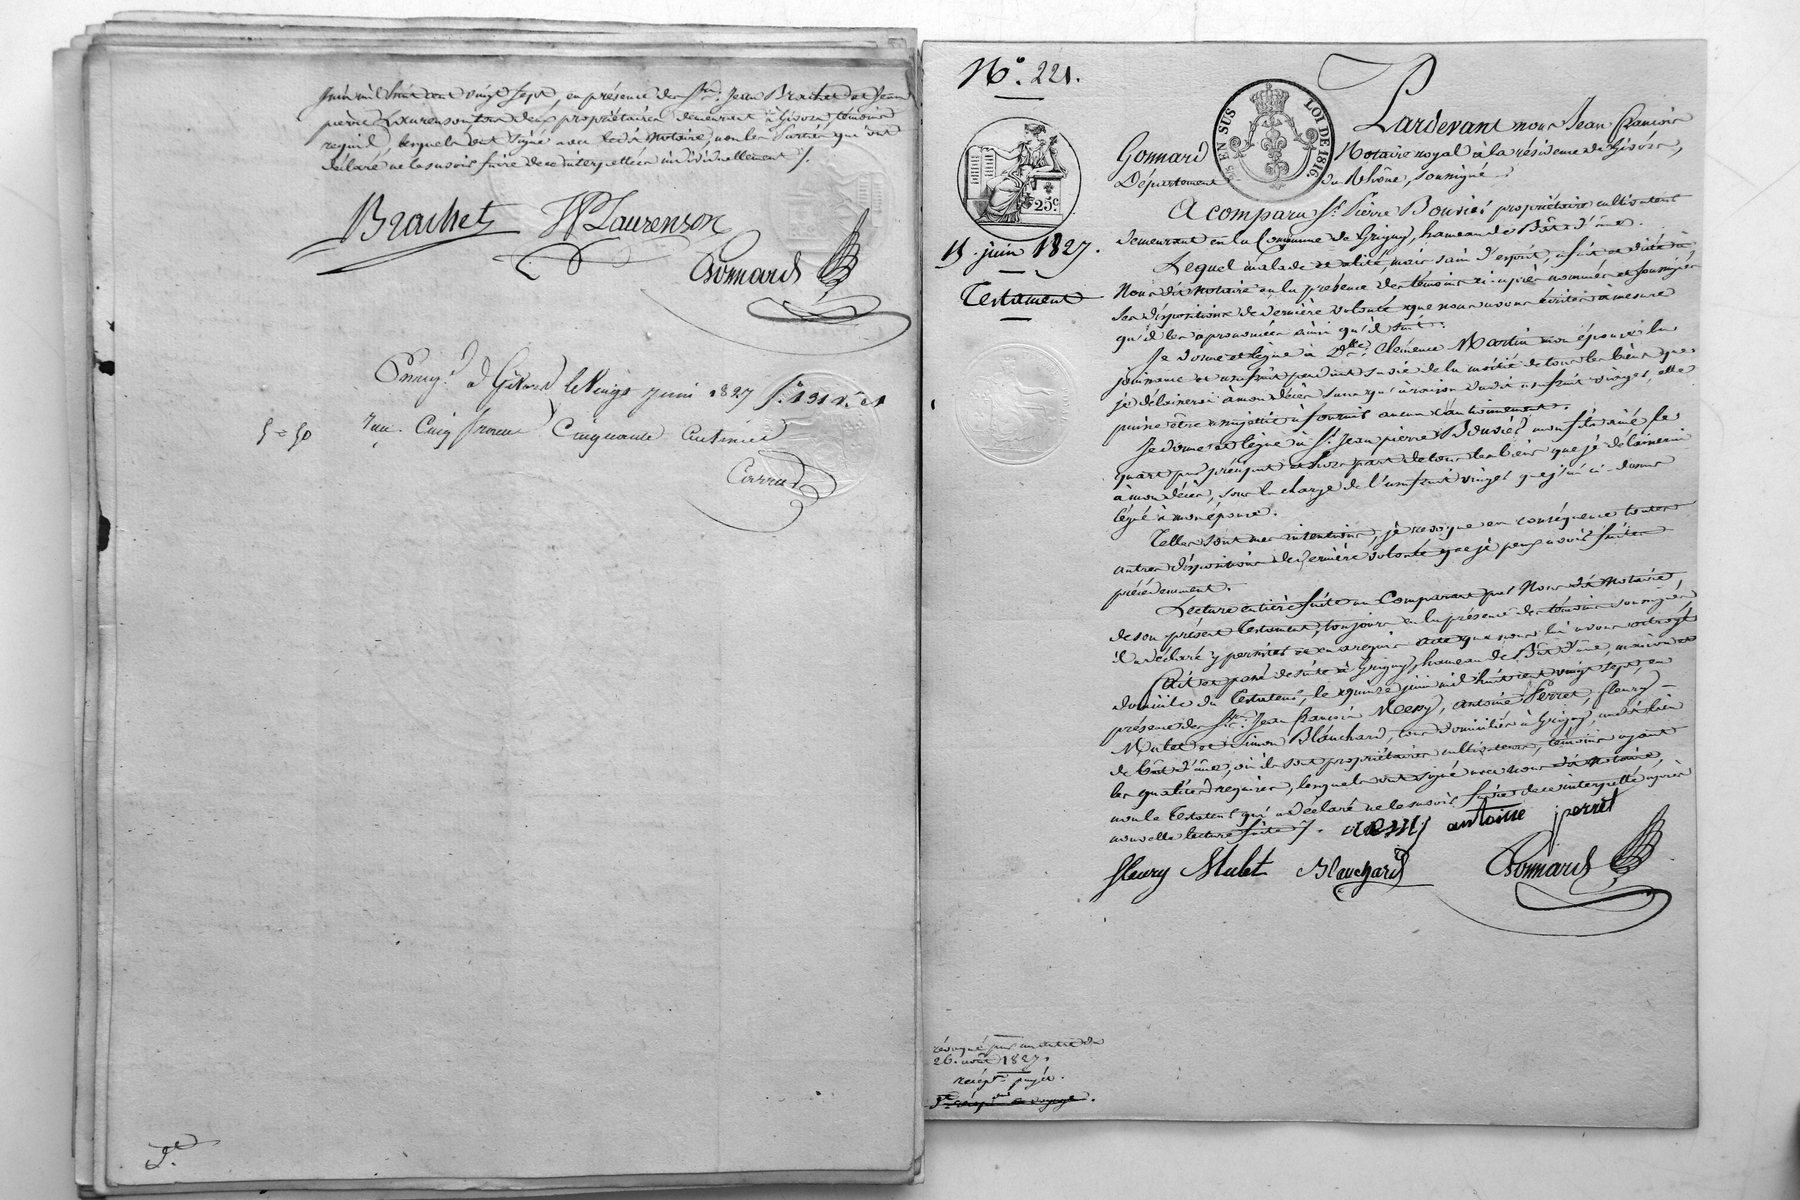 juin mil huit cent vingt sept, en présence des Srs. Jean Brachet et Jean
pierre Laurenson tous deux propriétaires demeurant à Givors, témoins
requis, lesquels ont signé avec ledit notaire, non les parties qui ont
déclaré ne le savoir faire de ce interpellées individuellement ./.
Brachet JP Laurenson
Gonnard
à Givors le vingt juin 1827 fo. 131
5 = 50 Reçu cinq francs cinquante centimes
No. 221.
EN SUS LOI DE 1816
25c
15. juin 1827.
Testament
Pardevant nous Jean françois
Gonnard Notaire royal à la résidence de Givors,
Département du Rhône, soussigné
A comparu Sr. Pierre Bouvier propriétaire cultivateur
demeurant en la Commune de Grigny, hameau de Bât d'âne.
Lequel malade et alité, mais sain d'esprit, a fait et dicté à
Nous dit notaire en la présence des témoins ci-après nommés et soussignés
ses dispositions de dernière volonté que nous avons écrites à mesure
qu'il les a prononcées ainsi qu'il suit.
Je donne et lègue à Clémence Martin mon épouse la
jouissance et usufruit pendant sa vie de la moitié de tous les biens que
je délaisserai à mon décès sans qu'à raison dudit usufruit viager, elle
puisse être assujettie à fournir aucun cautionnement.
Je donne et lègue à Sr. Jean pierre Bouvier mon fils aîné le
quart par préciput et hors part de tous les biens que je délaisserai
à mon décès, sous la charge de l'usufruit viager que j'ai ci-dessus
légué à mon épouse.
Telles sont mes intentions, je révoque en conséquence toutes
autres dispositions de dernière volonté que je peux avoir faites
précédemment.
Lecture entière faite au Comparant par Nous dit notaire,
de son présent testament, toujours en la présence des témoins soussignés
il a déclaré y persister et en a requis acte que nous lui avons octroyé
Fait et passé de suite à Grigny, hameau de Bât d'âne, maison et
domicile du testateur, le quinze juin mil huit cent vingt sept, en
présence des Srs. Jean françois Messy, antoine Perret, fleury
Mulet et Simon Blanchard, tous domiciliés à Grigny, audit lieu
de bât d'âne, où ils sont propriétaires cultivateurs, témoins ayant
les qualités requises, lesquels ont signé avec nous dit notaire,
non le testateur qui a déclaré ne le savoir faire de ce interpellé après
nouvelle lecture faite ./. messy antoine perret
fleury Mulet Blanchard Gonnard
révoqué par un autre du
26. août 1827.
payée.